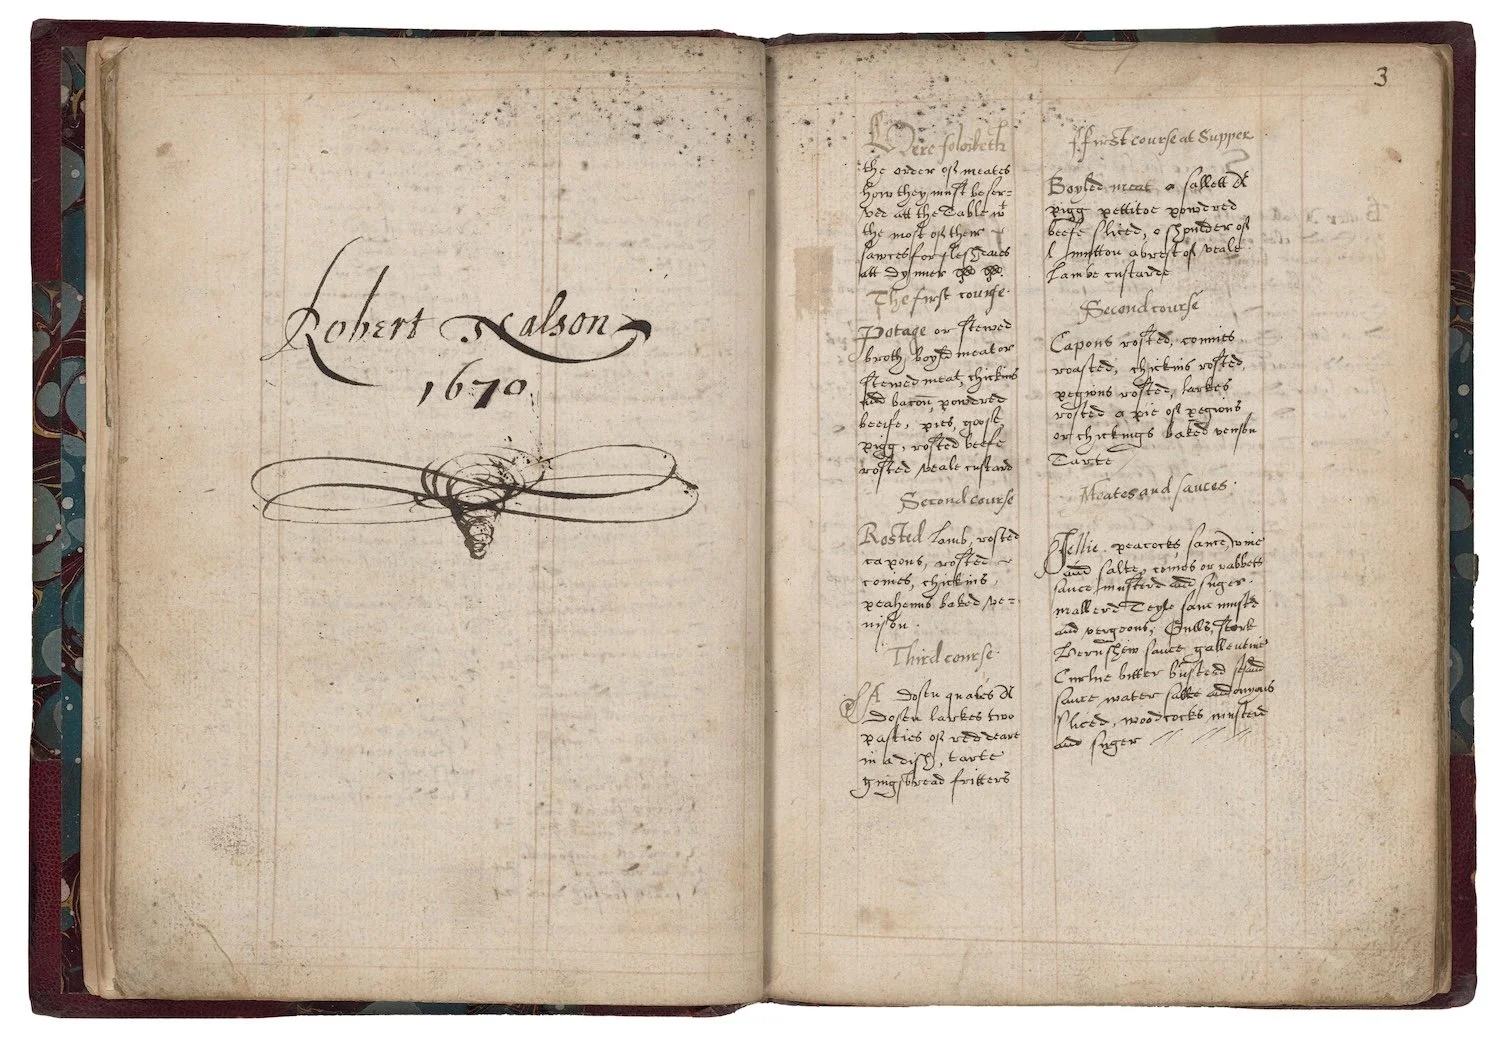 Robert Nalson
1670
3
Here foloweth
the order of meates
how they must be ser=
ved att the Table wt
the most of their
sawces for flesh
att dynner
The first course.
Potage or stewed
broth, boyld meat or
stewed meat, chickins
and bacon, powdred
beeife, pies, goose,
pigg, rosted beefe
rosted veale custard
Second course
Rosted lamb, rosted
capons, rosted
conies, chickins,
peahenns baked ve=
nison.
Third course.
A dosen quales a
dosen larkes two
pasties of red deare
in a dish, tarte
gingbread fritters
ffirst course at Supper
Boyled meat a sallett a
pigg pettitoe powdered
beefe sliced, a shoulder of
mutton a brest of veale
Lambe custarde
Second course
Capons rosted, connies
roasted, chickins rosted,
pegions rosted, larkes
rosted a pie of pegions
or chickings baked venson
Tarte
Meates and sauces.
Jellie peacocks, sauce, wine
and salte, conies or rabbets
sauce, musterd and suger.
mallerd Teyle sauc
and vergeous, Gulls, stork
hernshew sauce gallentine
Curlue bitter busterd
sauce water salte and onyons
sliced, woodcocks musterd
and suger